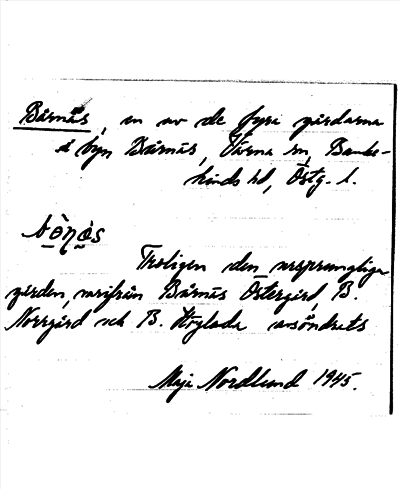 Bårnäs, en av de fyra gårdarna
i byn Bårnäs, Värna sn, Banke-
kinds hd, Östg. l.
bò̱ṉa̱s
Troligen den ursprungliga
gården, varifrån Bårnäs Östergård, B.
Norrgård och B. Höglada avsöndrats
Maja Nordlund 1945.